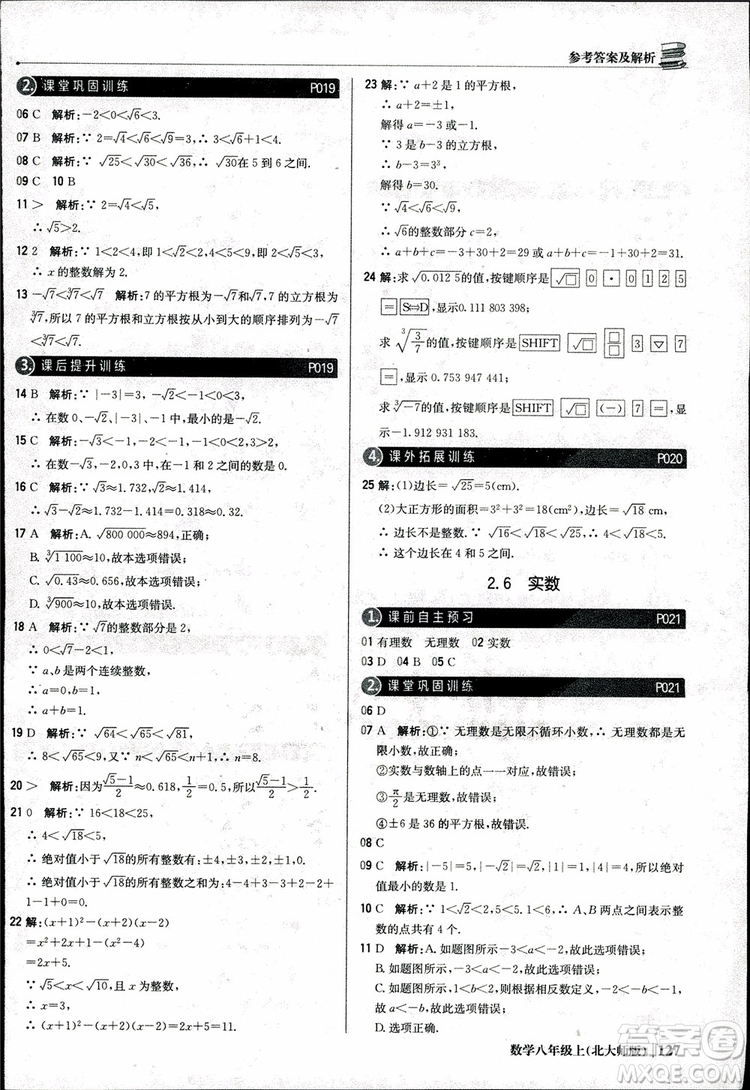 参考答案及解析
2. 课堂巩固训练 P019
06 C 解析:∵ -2<0<√6<3.
07 B 解析:∵ 2=√4<√6<√9=3,∴ 3<√6+1<4.
08 C 解析:∵ √25<√30<√36,∴ √30在 5 到 6 之间.
09 C 10 B
11 > 解析:∵ 2=√4<√5,
∴ √5>2.
12 2 解析:∵ 1<2<4,即 1<√2<2,又 4<5<9,即 2<√5<3,
∴ x 的整数解为 2.
13 -√7<∛7<√7 解析:7 的平方根为-√7和√7,7 的立方根为
∛7,所以 7 的平方根和立方根按从小到大的顺序排列为-√7
<∛7<√7.
3. 课后提升训练 P019
14 B 解析:∵ |-3|=3,∴ -√2<0<|-3|<π,
∴ 在数 0、-√2、|-3|、π中,最小的是-√2.
15 C 解析:∵ -√3<-1,-2<-1,-1<0<2,3>2,
∴ 在-√3,-2,0,3 中,大小在-1 和 2 之间的数是 0.
16 C 解析:∵ √3≈1.732,√2≈1.414,
∴ √3-√2≈1.732-1.414=0.318>0.
17 A 解析:A. √800 000≈894,正确;
B. ∛1 100≈10,故本选项错误;
C. √0.43≈0.7,故本选项错误;
D. ∛900≈10,故本选项错误.
18 A 解析:∵ √7的整数部分是 2,
∴ 0<√7-2<1.
∵ a、b 是两个连续整数,
∴ a=0,b=1,
∴ a+b=1.
19 D 解析:∵ √64<√65<√81,
∴ 8<√65<9,又∵ n<√65<n+1,∴ n=8.
20 > 解析:因为(√5-1)/2≈0.618,1/2=0.5,所以(√5-1)/2>1/2.
21 0 解析:∵ 16<18<25,
∴ 4<√18<5,
∴ 绝对值小于√18的所有整数有:±4,±3,±2,±1,0,
∴ 绝对值小于√18的所有整数之和为-4+4-3+3-2+2-
1+1+0=0.
22 解:(x+1)²-(x+1)(x-2)
=(x²+2x+1)-(x²-x-2)
=x²+2x+1-x²+x+2
=3x+3.
∵ √5<x<√10,且 x 为整数,
∴ x=3,
∴ 原式=3×3+3=12.
23 解:∵ a+2 是 1 的平方根,
∴ a+2=±1.
解得 a=-1 或 a=-3.
∵ 3 是 b-3 的立方根,
∴ b-3=3³.
解得 b=30.
∵ √4<√6<√9,
∴ √6的整数部分 c=2,
∴ a+b+c=-3+30+2=29 或 a+b+c=-1+30+2=31.
24 解:求√0.012 5的值,按键顺序是 √□ 0 · 0 1 2 5
= S⇔D ,显示0.111 803 398;
求 ∛(3/7) 的值,按键顺序是 SHIFT √□ 3 7
= ,显示 0.753 947 441;
求∛-7的值,按键顺序是 SHIFT √□ (-) 7 = ,显
示-1.912 931 183.
4. 课外拓展训练 P020
25 解:(1)边长=√25=5(cm).
(2)大正方形的面积=3²+3²=18(cm²),边长=√18,
∴ 边长不是整数.∵ √16<√18<√25,即 4<√18<5,
∴ 这个边长在 4 和 5 之间.
2.6 实数
1. 课前自主预习 P021
01 有理数 无理数 02 实数
03 D 04 B 05 C
2. 课堂巩固训练 P021
06 D
07 A 解析:①∵ 无理数是无限不循环小数,∴ 无理数都是无
限小数,故正确;
②实数与数轴上的点一一对应,故错误;
③π/2是无理数,故错误;
④±6 是 36 的平方根,故错误.
08 C
09 C 解析:|-5|=5,|-√2|=√2,|1|=1,|4|=4,所以绝对
值最小的数是 1.
10 C 解析:∵ 1<√2<2,5<5.1<6,∴ A、B 两点之间表示整数
的点共有 4 个.
11 D 解析:A. 如题图所示,-3<a<-2,故此选项错误;
B. 如题图所示,-3<a<-2,故此选项错误;
C. 如题图所示,1<b<2,则-2<-b<-1,又-3<a<-2,
故 a<-b,故此选项错误;
D. 选项正确.
数学八年级上(北大师版) 127